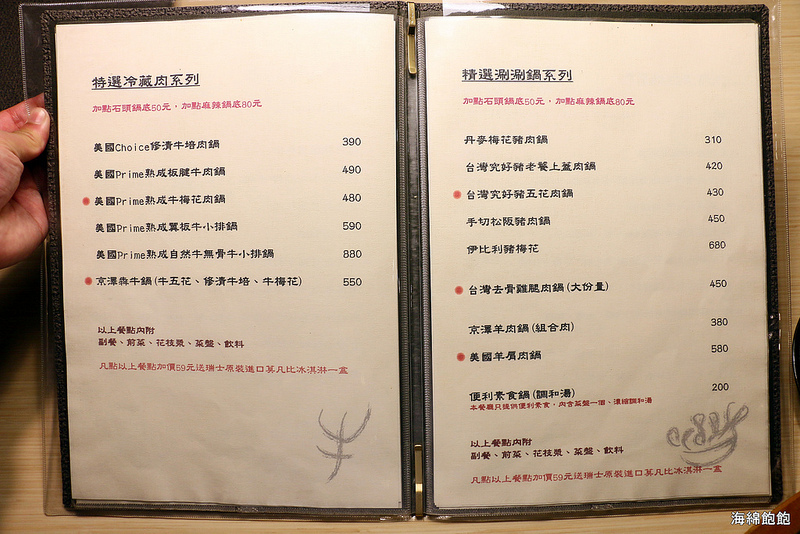 特選冷藏肉系列
加點石頭鍋底50元，加點麻辣鍋底80元
美國Choice修清牛培肉鍋 390
美國Prime熟成板腱牛肉鍋 490
美國Prime熟成牛梅花肉鍋 480
美國Prime熟成翼板牛小排鍋 590
美國Prime熟成自然牛無骨牛小排鍋 880
京澤犇牛鍋(牛五花、修清牛培、牛梅花) 550
以上餐點內附
副餐、前菜、花枝漿、菜盤、飲料
凡點以上餐點加價59元送瑞士原裝進口莫凡比冰淇淋一盒
精選涮涮鍋系列
加點石頭鍋底50元，加點麻辣鍋底80元
丹麥梅花豬肉鍋 310
台灣究好豬老饕上蓋肉鍋 420
台灣究好豬五花肉鍋 430
手切松阪豬肉鍋 450
伊比利豬梅花 680
台灣去骨雞腿肉鍋(大份量) 450
京澤羊肉鍋(組合肉) 380
美國羊肩肉鍋 580
便利素食鍋(調和湯) 200
本餐廳只提供便利素食，內含菜盤一個、濃縮調和湯
以上餐點內附
副餐、前菜、花枝漿、菜盤、飲料
凡點以上餐點加價59元送瑞士原裝進口莫凡比冰淇淋一盒
海綿飽飽